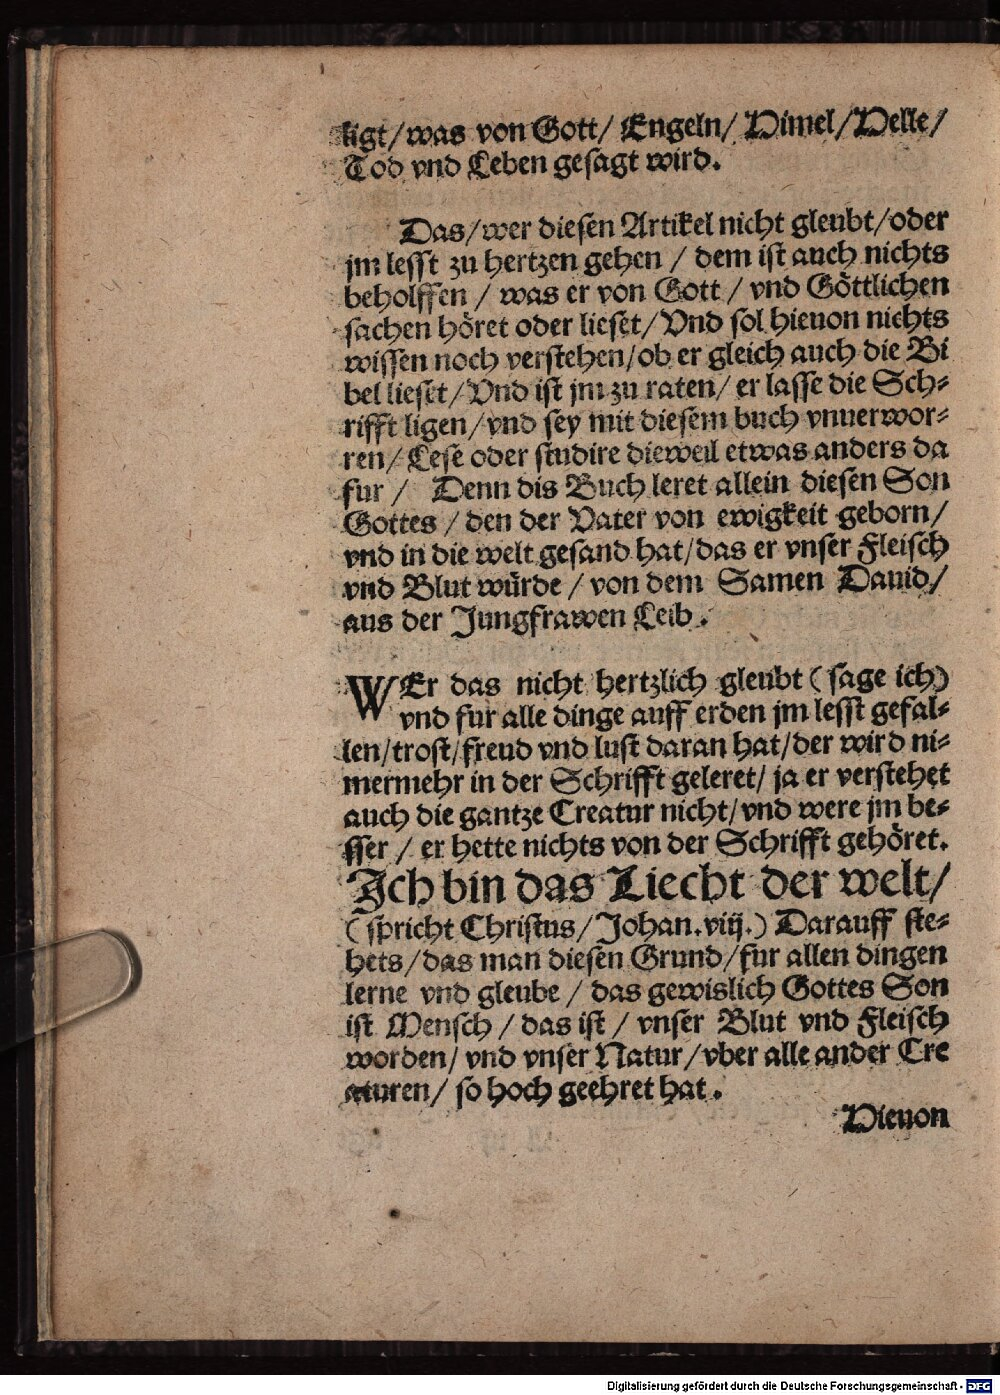 ligt/was von Gott/ Engeln/ Himel/Helle/
Tod vnd Leben gesagt wird.
Das/wer diesen Artikel nicht gleubt/oder
jm lesst zu hertzen gehen / dem ist auch nichts
beholffen / was er von Gott / vnd Göttlichen
sachen höret oder lieset/Vnd sol hieuon nichts
wissen noch verstehen/ob er gleich auch die Bi
bel lieset/Vnd ist jm zu raten/ er lasse die Sch-
rifft ligen/vnd sey mit diesem buch vnuerwor-
ren/Lese oder studire dieweil etwas anders da
fur / Denn dis Buch leret allein diesen Son
Gottes / den der Vater von ewigkeit geborn/
vnd in die welt gesand hat/das er vnser Fleisch
vnd Blut würde / von dem Samen Dauid/
aus der Jungfrawen Leib.
WEr das nicht hertzlich gleubt (sage ich)
vnd fur alle dinge auff erden jm lesst gefal-
len/trost/freud vnd lust daran hat/der wird ni-
mermehr in der Schrifft geleret/ ja er verstehet
auch die gantze Creatur nicht/vnd were jm be-
sser / er hette nichts von der Schrifft gehöret.
Ich bin das Liecht der welt/
(spricht Christus/Johan.viij.) Darauff ste-
hets/das man diesen Grund/fur allen dingen
lerne vnd gleube / das gewislich Gottes Son
ist Mensch / das ist / vnser Blut vnd Fleisch
worden/ vnd vnser Natur/vber alle ander Cre
aturen/ so hoch geehret hat.
Hieuon
Digitalisierung gefördert durch die Deutsche Forschungsgemeinschaft - DFG